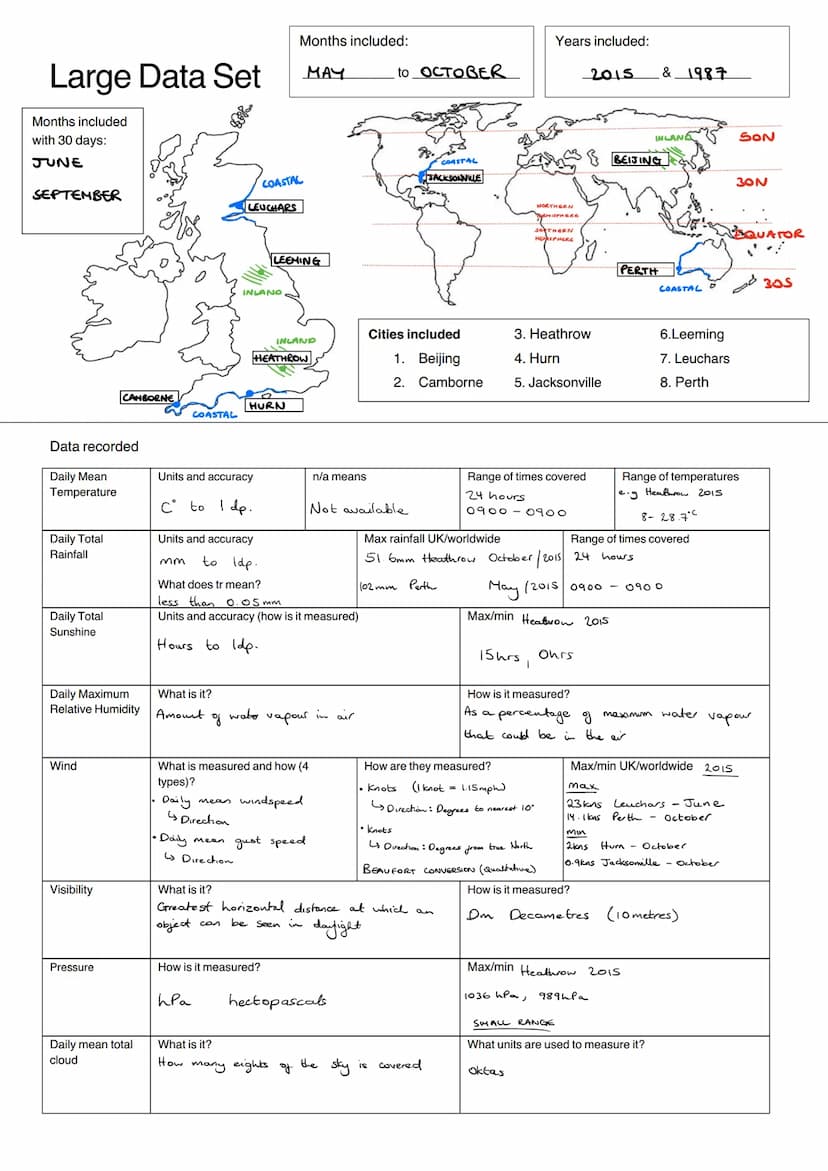 Large Data Set
Months included:
MAY to OCTOBER
Years included:
2015 & 1987
Months included
with 30 days:
JUNE
SEPTEMBER
COASTAL
LEUCHARS
LEEMING
INLAND
INLAND
HEATHROW
CAMBORNE
COASTAL
HURN
INLAND
BEIJING
COASTAL
JACKSONVILLE
NORTHERN
HEMISPHERE
SOUTHERN
HEMISPHERE
PERTH
COASTAL
50N
30N
EQUATOR
30S
Cities included
1. Beijing
2. Camborne
3. Heathrow
4. Hurn
5. Jacksonville
6.Leeming
7. Leuchars
8. Perth
Data recorded
Daily Mean
Temperature
Units and accuracy
C° to 1dp.
n/a means
Not available
Range of times covered
24 hours
0900 - 0900
Range of temperatures
e.g Heathrow 2015
8- 28.7°C
Daily Total
Rainfall
Units and accuracy
mm to 1dp.
What does tr mean?
less than 0.05mm
Max rainfall UK/worldwide
51 6mm Heathrow October/2015
102mm Perth May/2015
Range of times covered
24 hours
0900 - 0900
Daily Total
Sunshine
Units and accuracy (how is it measured)
Hours to 1dp.
Max/min Heathrow 2015
15hrs, 0hrs
Daily Maximum
Relative Humidity
What is it?
Amount of water vapour in air
How is it measured?
As a percentage of maximum water vapour
that could be in the air
Wind
What is measured and how (4
types)?
• Daily mean windspeed
↳ Direction
• Daily mean gust speed
↳ Direction
How are they measured?
• Knots (1 knot = 1.15mph)
↳ Direction: Degrees to nearest 10°
• Knots
↳ Direction: Degrees from true North
BEAUFORT CONVERSION (Qualitative)
Max/min UK/worldwide 2015
max
23kns Leuchars - June
14.1kns Perth - October
min
2kns Hurn - October
0.9kns Jacksonville - October
Visibility
What is it?
Greatest horizontal distance at which an
object can be seen in daylight
How is it measured?
Dm Decametres (10metres)
Pressure
How is it measured?
hPa hectopascals
Max/min Heathrow 2015
1036 hPa, 989hPa
SMALL RANGE
Daily mean total
cloud
What is it?
How many eights of the sky is covered
What units are used to measure it?
Oktas